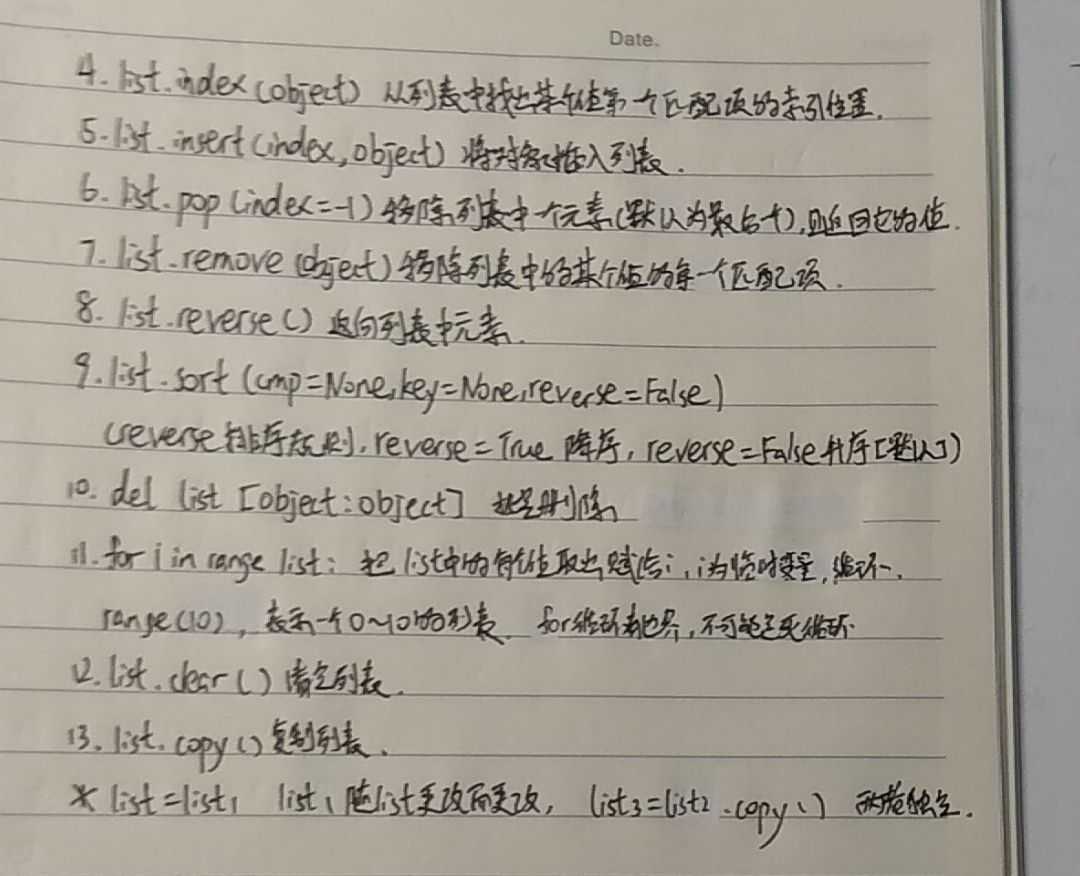 Date.
4. list.index(object) 从列表中找出某个值第一个匹配项的索引位置.
5. list.insert(index, object) 将对象插入列表.
6. list.pop(index=-1) 移除列表中一个元素(默认为最后一个),且返回它的值.
7. list.remove(object) 移除列表中的某个值的第一个匹配项.
8. list.reverse() 反向列表中元素.
9. list.sort (cmp=None, key=None, reverse=False)
(reverse 排序规则. reverse = True 降序, reverse=False 升序[默认])
10. del list [object:object] 批量删除
11. for i in range list: 把list中的每个值取出赋给i, i为临时变量, 循环一.
range(10), 表示一个0~10的列表. for循环有边界, 不可能是死循环.
12. list.clear() 清空列表.
13. list.copy() 复制列表.
* list=list1 list1随list更改而更改, list3=list2.copy() 独立.